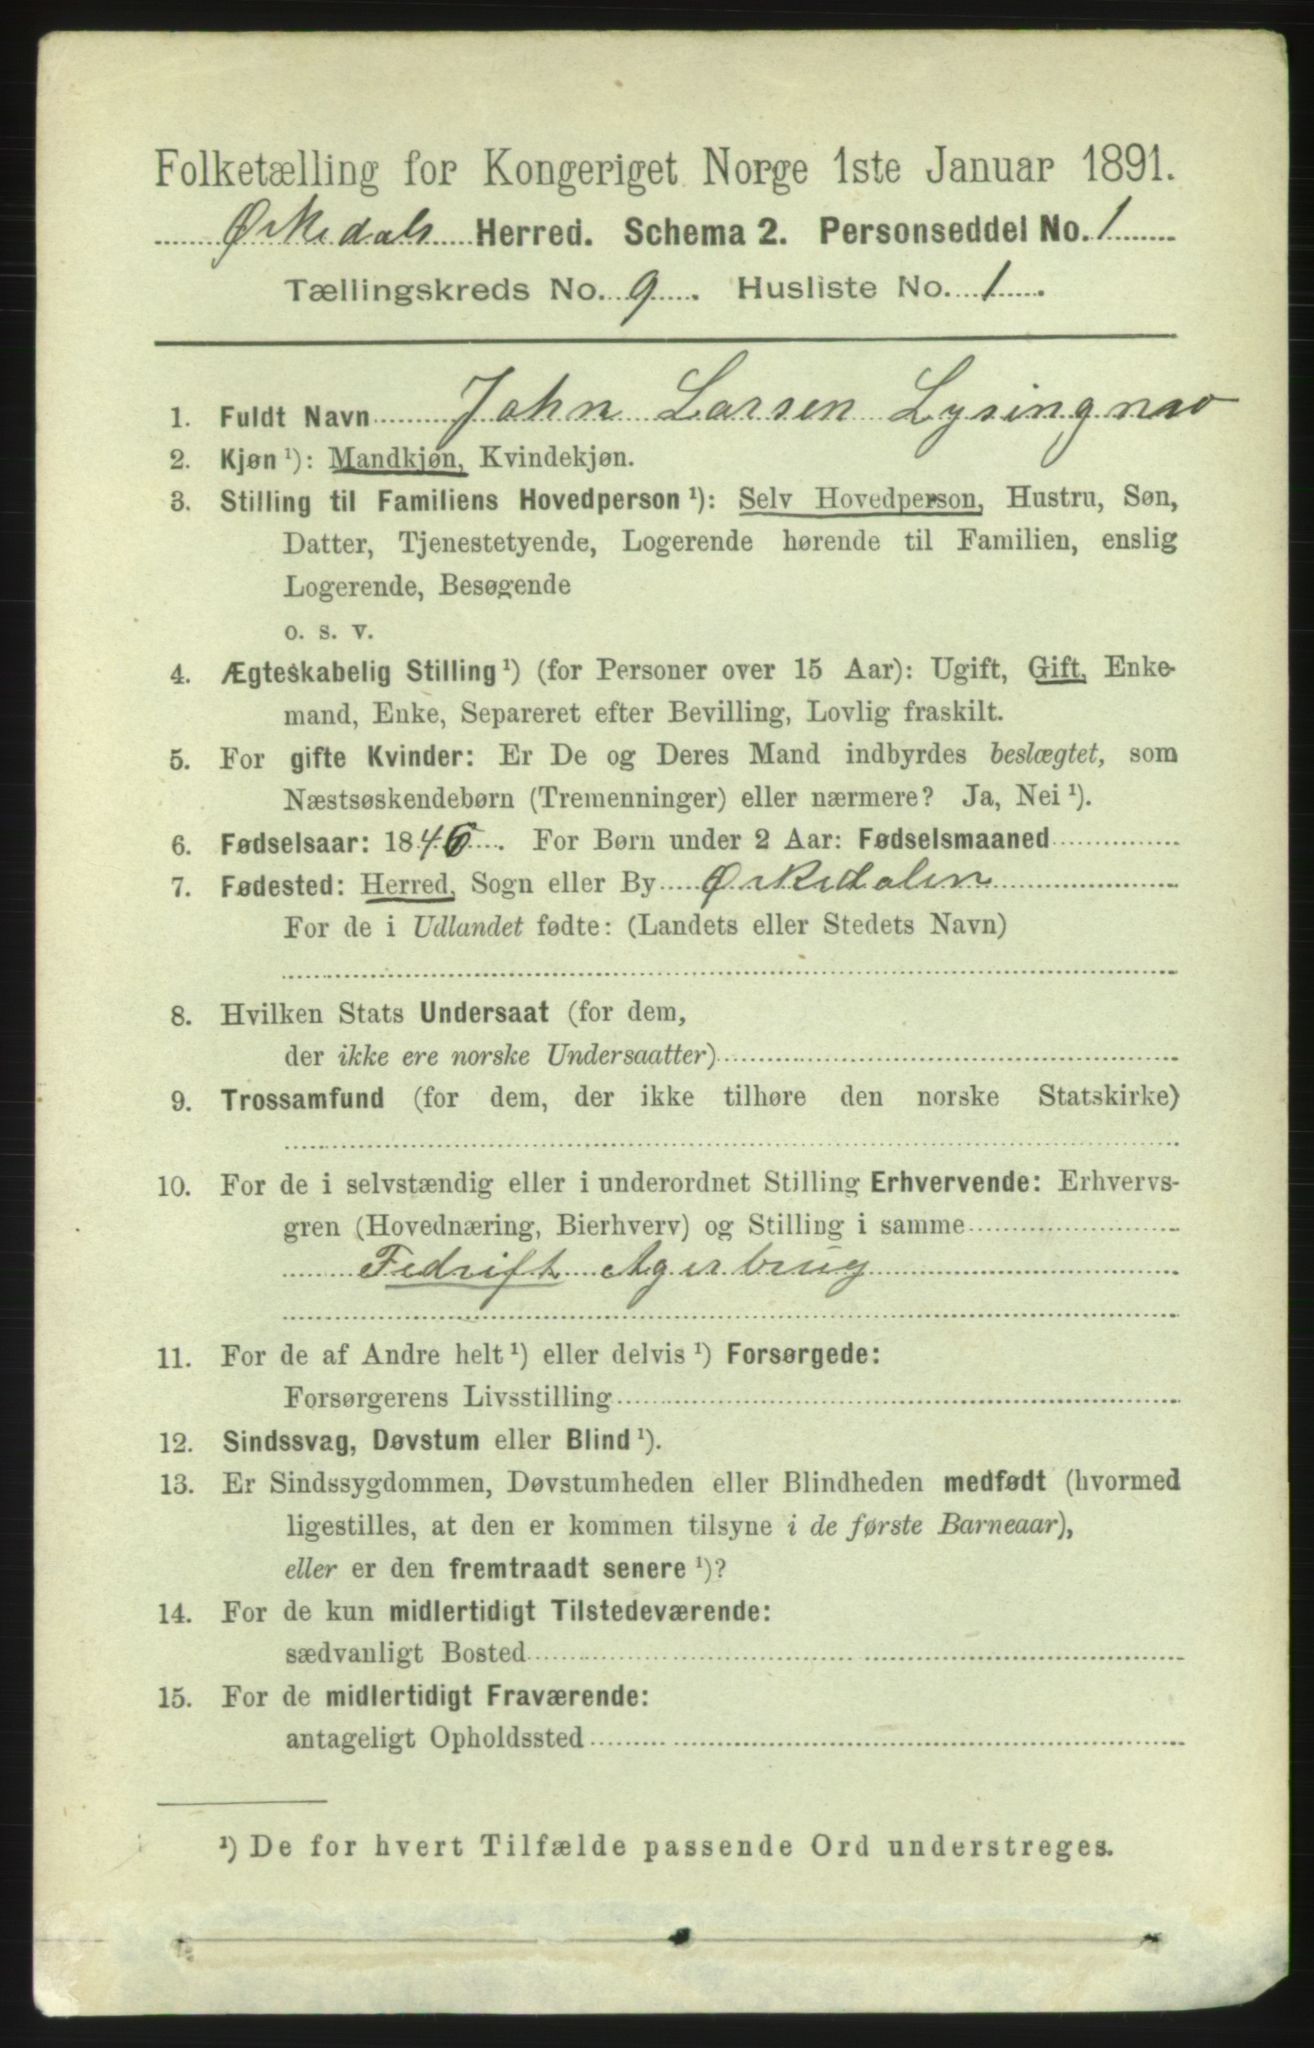 Folketælling for Kongeriget Norge 1ste Januar 1891.
Ørkedals Herred. Schema 2. Personseddel No. 1
Tællingskreds No. 9. Husliste No. 1.
1. Fuldt Navn John Larsen
2. Kjøn¹): Mandkjøn, Kvindekjøn.
3. Stilling til Familiens Hovedperson¹): Selv Hovedperson, Hustru, Søn,
Datter, Tjenestetyende, Logerende hørende til Familien, enslig
Logerende, Besøgende
o. s. v.
4. Ægteskabelig Stilling¹) (for Personer over 15 Aar): Ugift, Gift, Enke-
mand, Enke, Separeret efter Bevilling, Lovlig fraskilt.
5. For gifte Kvinder: Er De og Deres Mand indbyrdes beslægtet, som
Næstsøskendebørn (Tremenninger) eller nærmere? Ja, Nei¹).
6. Fødselsaar: 1846. For Børn under 2 Aar: Fødselsmaaned
7. Fødested: Herred, Sogn eller By Ørkedalen
For de i Udlandet fødte: (Landets eller Stedets Navn)
8. Hvilken Stats Undersaat (for dem,
der ikke ere norske Undersaatter)
9. Trossamfund (for dem, der ikke tilhøre den norske Statskirke)
10. For de i selvstændig eller i underordnet Stilling Erhvervende: Erhvervs-
gren (Hovednæring, Bierhverv) og Stilling i samme
Fedrift Agerbrug
11. For de af Andre helt¹) eller delvis¹) Forsørgede:
Forsørgerens Livsstilling
12. Sindssvag, Døvstum eller Blind¹).
13. Er Sindssygdommen, Døvstumheden eller Blindheden medfødt (hvormed
ligestilles, at den er kommen tilsyne i de første Barneaar),
eller er den fremtraadt senere¹)?
14. For de kun midlertidigt Tilstedeværende:
sædvanligt Bosted
15. For de midlertidigt Fraværende:
antageligt Opholdssted
¹) De for hvert Tilfælde passende Ord understreges.